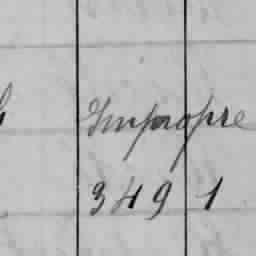 Impropre
3491